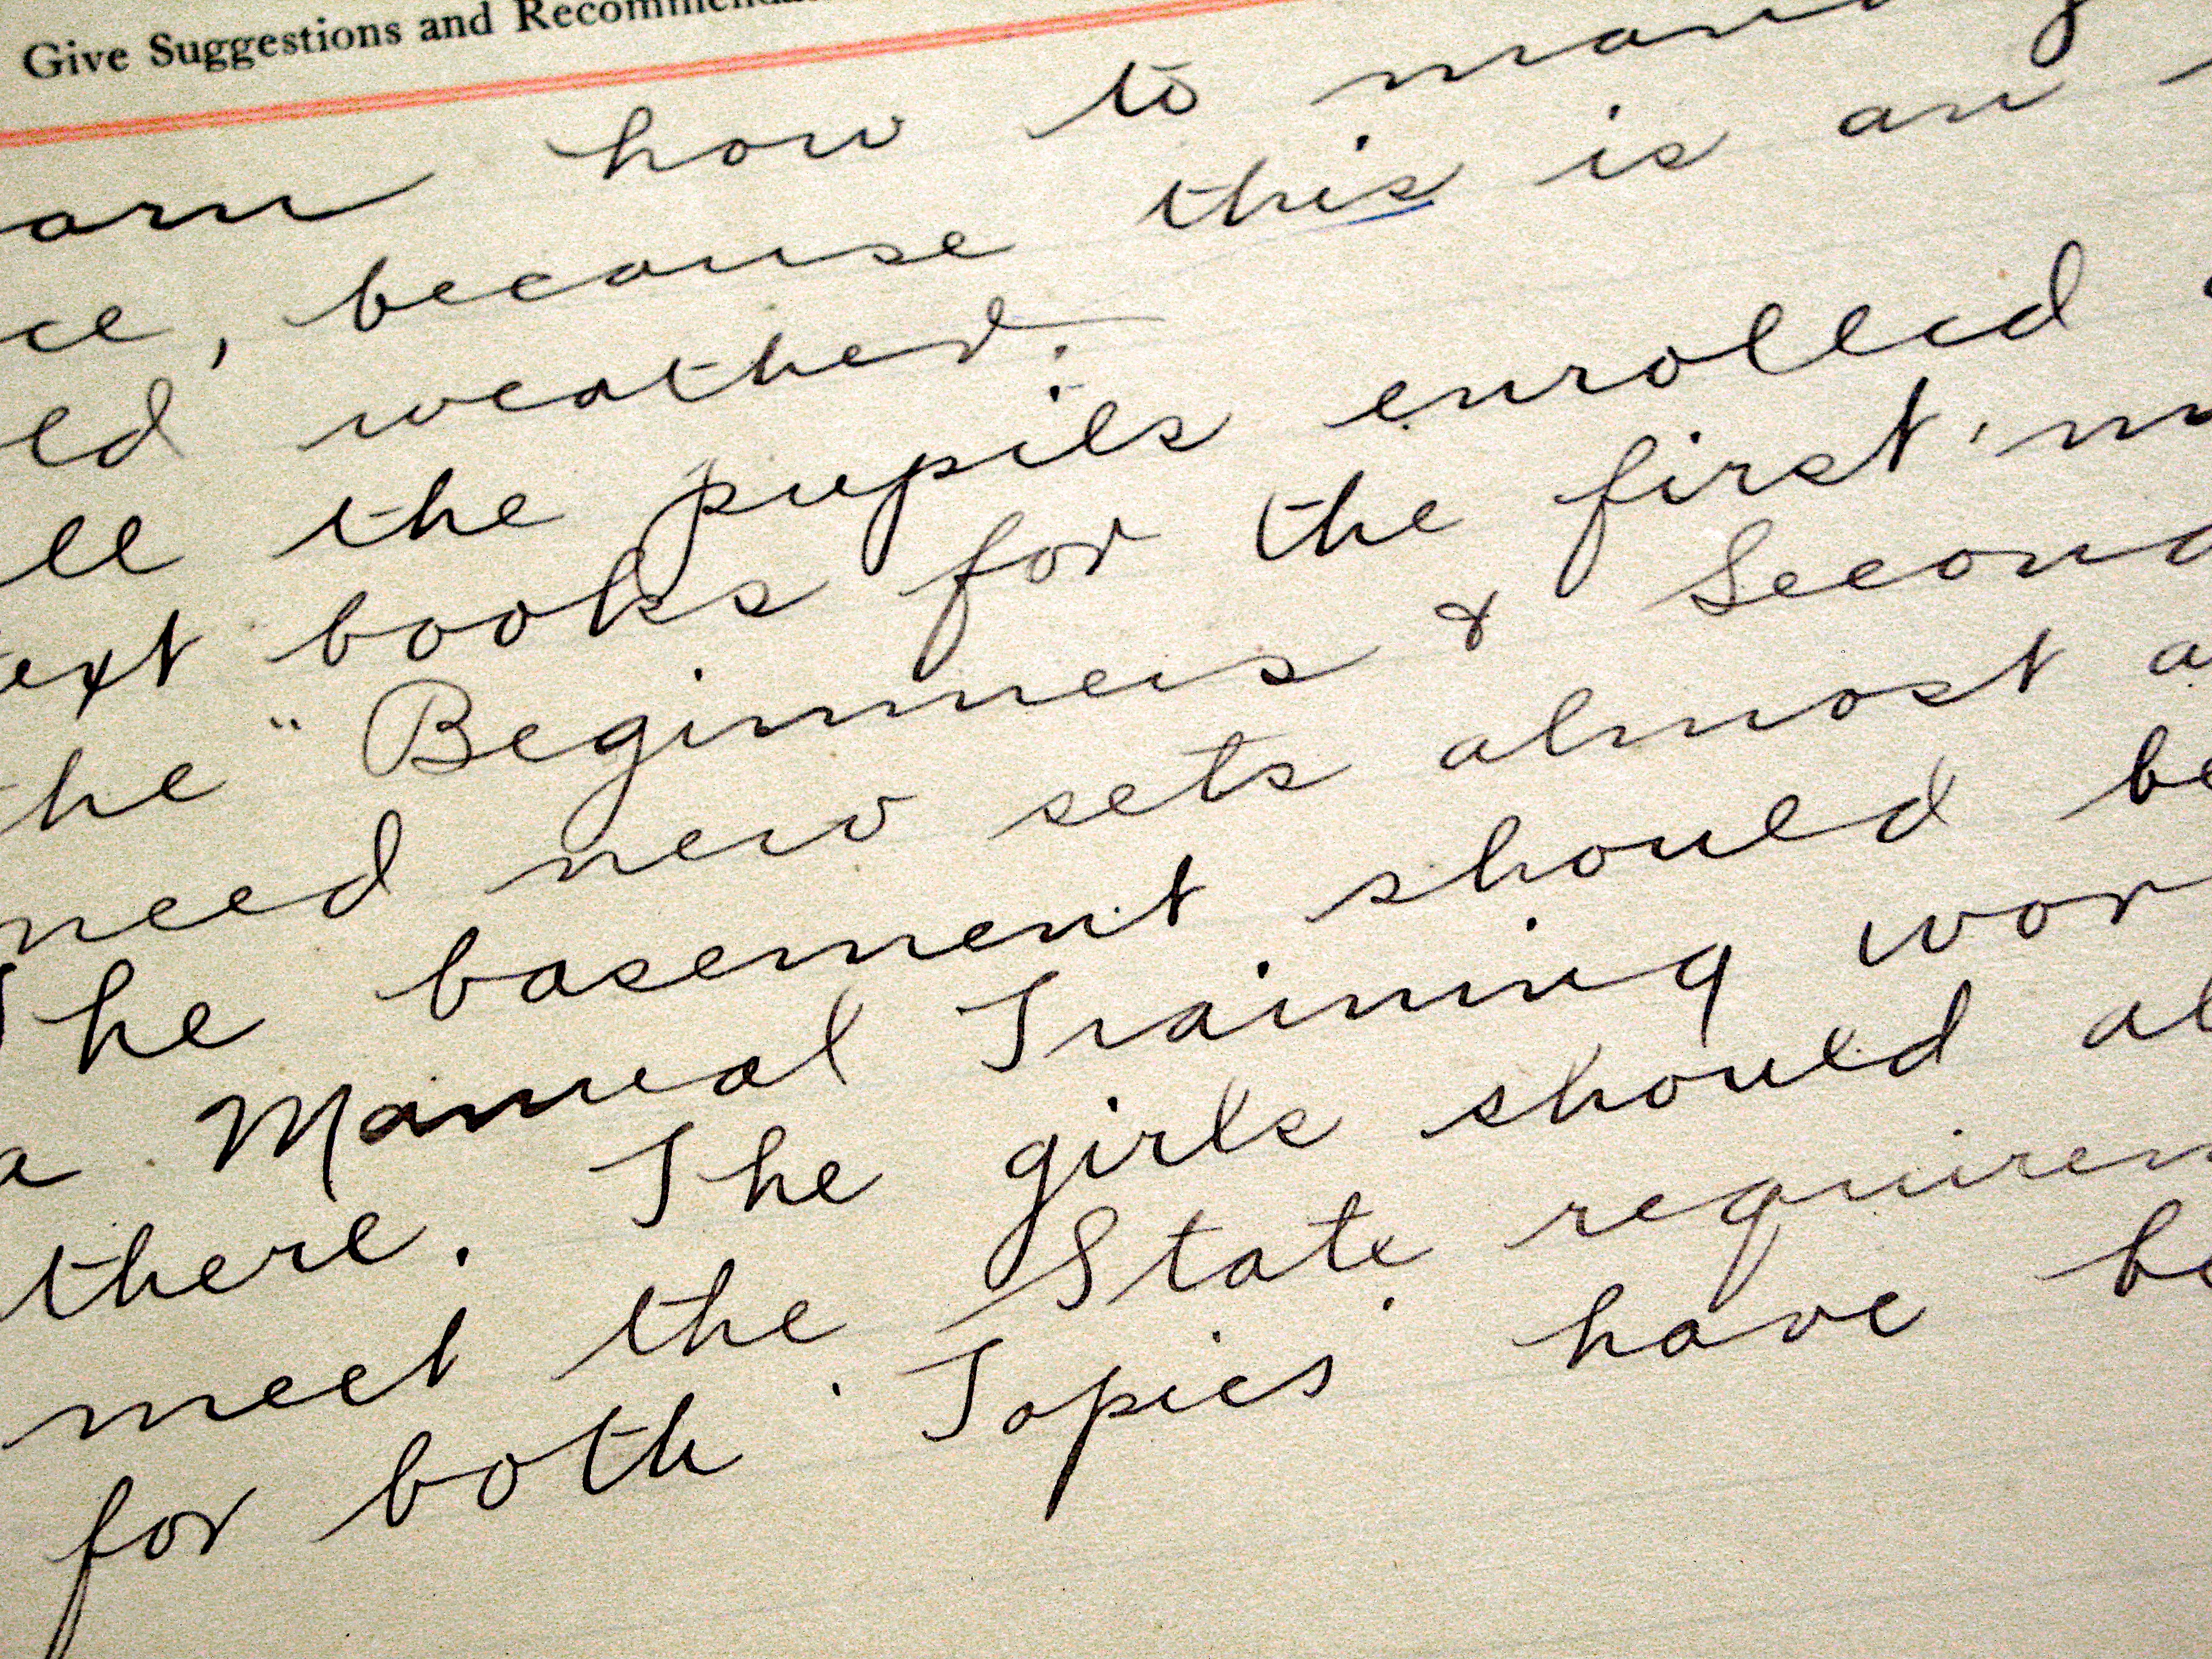 Give Suggestions and Recommenda
arn how to manag
ce, because this is an
ld weather.
ll the pupils enrolled
ext books for the first
he "Beginners & Second
need new sets almost a
The basement should be
a Manual Training wor
there. The girls should al
meet the State requirem
for both. Topics have be